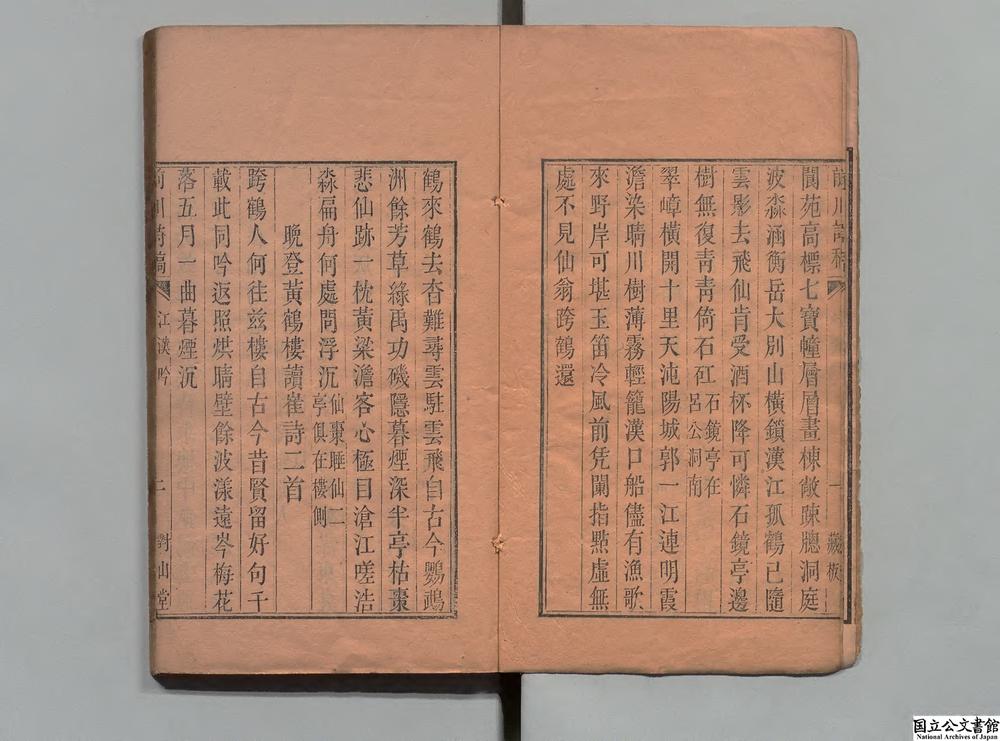 前川詩稿 一 藏板
閬苑高標七寶幢層層畫棟敞疎牕洞庭
波淼涵衡岳大別山橫鎖漢江孤鶴已隨
雲影去飛仙肯受酒杯降可憐石鏡亭邊
樹無復青青倚石矼 石鏡亭在
呂公洞南
翠嶂橫開十里天沌陽城郭一江連明霞
澹染晴川樹薄霧輕籠漢口船儘有漁歌
來野岸可堪玉笛冷風前凭闌指㸃虛無
處不見仙翁跨鶴還
鶴來鶴去杳難尋雲駐雲飛自古今鸚鵡
洲餘芳草綠禹功磯隱暮煙深半亭枯棗
悲仙跡一枕黃粱澹客心極目滄江嗟浩
淼扁舟何處問浮沉 仙棗睡仙二
亭俱在樓側
晚登黃鶴樓讀崔詩二首
跨鶴人何往兹樓自古今昔賢留好句千
載此同吟返照烘晴壁餘波漾遠岑梅花
落五月一曲暮煙沉
前川詩稿 江漢吟 二 對山堂
国立公文書館
National Archives of Japan